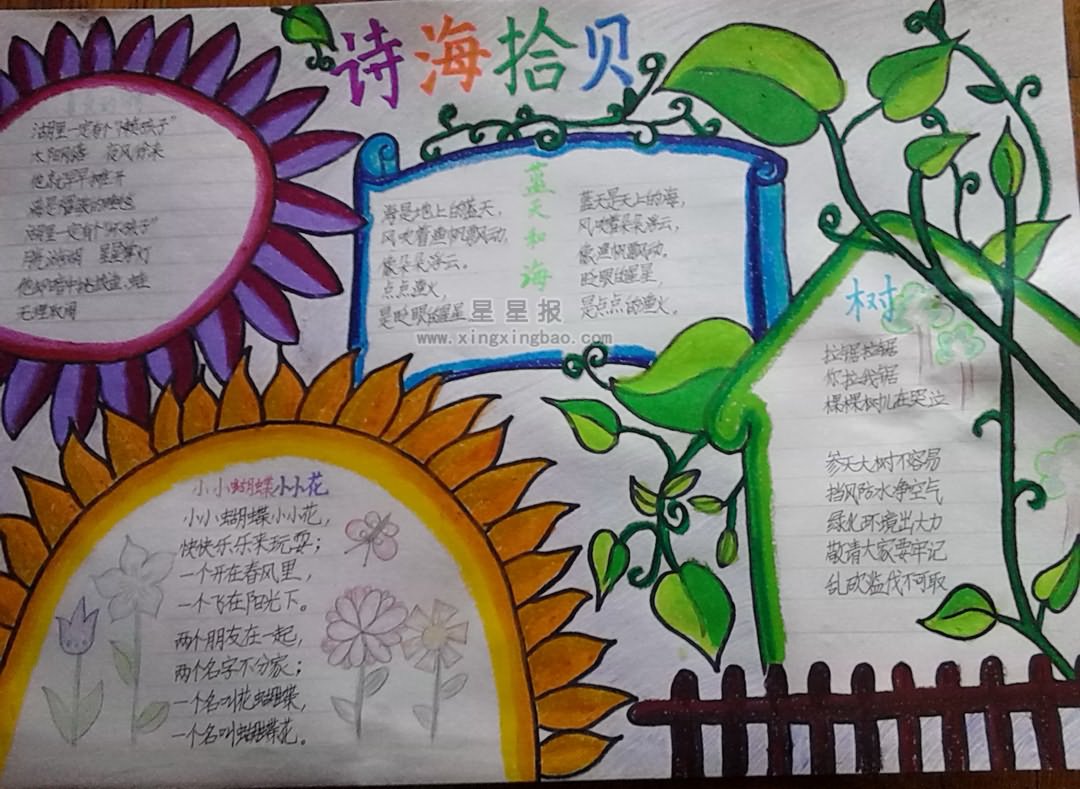 诗海拾贝
湖里一定有个"懒孩子"
太阳刚落 夜风吹来
他就早早摊开
湖里一定有个"坏孩子"
无理取闹
蓝天和海
海是地上的蓝天，
风吹着渔帆飘动，
像朵朵浮云。
点点渔火，
是眨眼的星星
蓝天是天上的海，
风吹着朵朵浮云，
像渔帆飘动。
眨眼的星星，
是点点的渔火。
星星报
www.xingxingbao.com
树
拉锯拉锯
你拉我锯
棵棵树儿在哭泣
参天大树不容易
挡风防水净空气
绿化环境出大力
敬请大家要牢记
乱砍滥伐不可取
小小蝴蝶小小花
小小蝴蝶小小花，
快快乐乐来玩耍；
一个开在春风里，
一个飞在阳光下。
两个朋友在一起，
两个名字不分家；
一个名叫花蝴蝶，
一个名叫蝴蝶花。